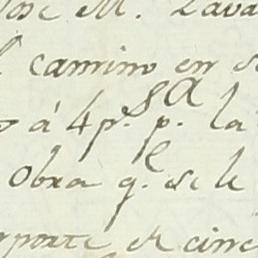 Jose M. Lava
l camino en s
o á 4 p.s p.a la
obra q.e se le
mporte de cinc